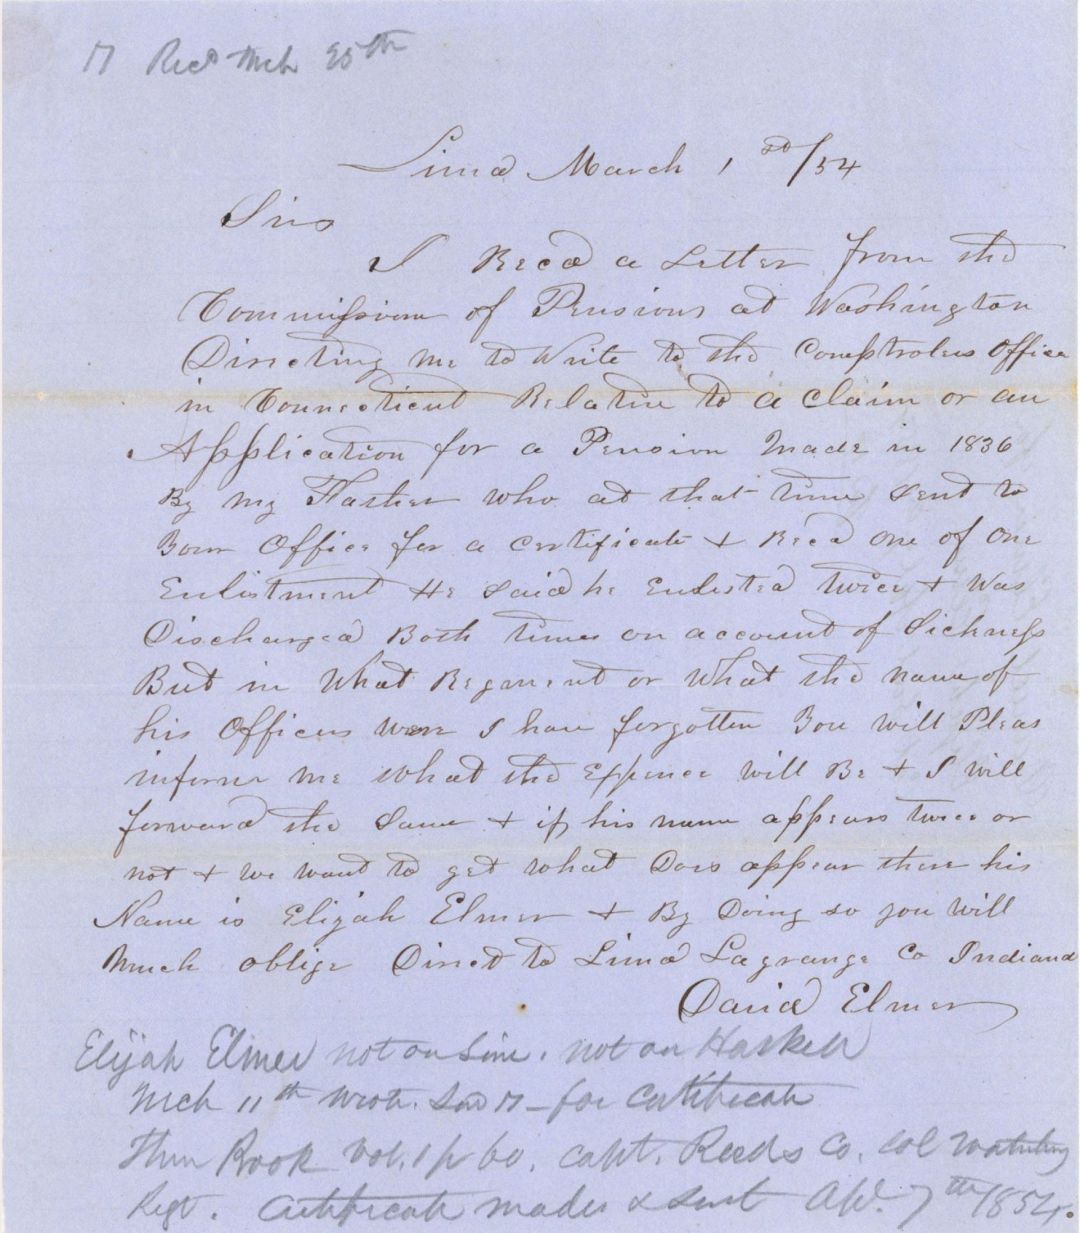 Recd Mch 25th
Lima March 1st/54
Sirs
I Recd a Letter from the
Commission of Pensions at Washington
Directing me to Write to the Comptrolers Office
in Connecticut Relative to a claim or an
Application for a Pension Made in 1836
By my Father who at that time sent to
Your Office for a certificate & Recd one of one
Enlistment He said he Enlisted twice & Was
Discharged Both times on account of Sickness
But in What Regment or What the name of
his Officers Were I have forgotten You will Pleas
inform me what the Expence will Be & I will
forward the Same & if his name appears twice or
not & we want to get what Does appear there his
Name is Elijah Elmer & By Doing so you Will
Much oblige Direct to Lima Lagrange Co Indiana
David Elmer
Elijah Elmer not on Line. not on Haskell
Mch 11th wrote. for Certificate
Then Book Vol. 1 p 60. Capt. Reeds Co. Col Waterbury
Regt. Certificate made & sent Apl. 7th 1854.